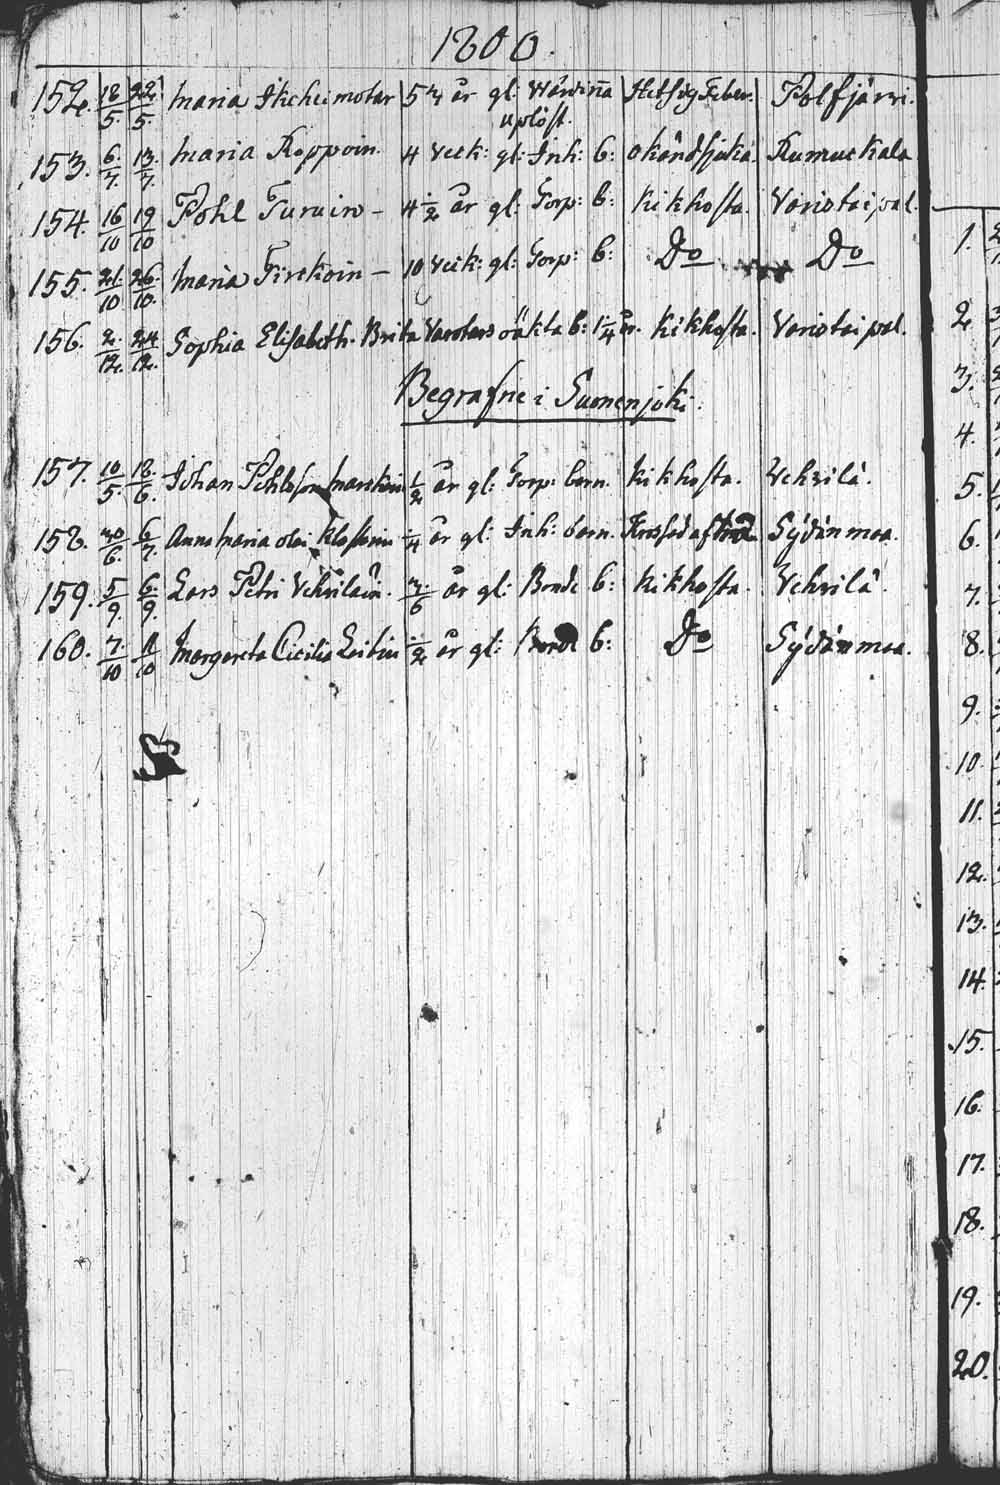 1800.
152. 18/5. 22/5. Maria Ikeheimotar 53 år gl: Wärdinna Hetsig Feber. Polfjärvi.
uplöst.
153. 6/7. 13/7. Maria Roppoin. 4 Veck: gl: Inh: b: okänd sjuka. Rumuckala
154. 16/10 19/10 Pohl Turuin - 4 1/2 år gl: Torp: b: kikhosta. Varistaipal.
155. 21/10 26/10. Maria Tirskoin - 10 Veck: gl: Torp: b: Do Do
156. 2/12. 24/12. Sophia Elisabeth. Brita Varotars oäkta b: 1 1/4 år. kikhosta. Varistaipal.
Begrafne i Suonenjoki.
157. 10/5. 12/6. Johan Pohlsson 1/2 år gl: Torp: barn. kikhosta. Vehvilä.
158. 30/6. 6/7. Anna Maria 1/4 år gl: Inh: barn. Sydänmaa.
159. 5/9. 6/9. Lars Petri Vehviläin. 3/6 år gl: Bonde b: kikhosta. Vehvilä.
160. 7/10 11/10 Margareta Cicilia 1/2 år gl: Bonde b: Do Sydänmaa.
1.
2
3.
4.
5.
6.
7.
8.
9.
10.
11.
12.
13.
14.
15.
16.
17.
18.
19.
20.